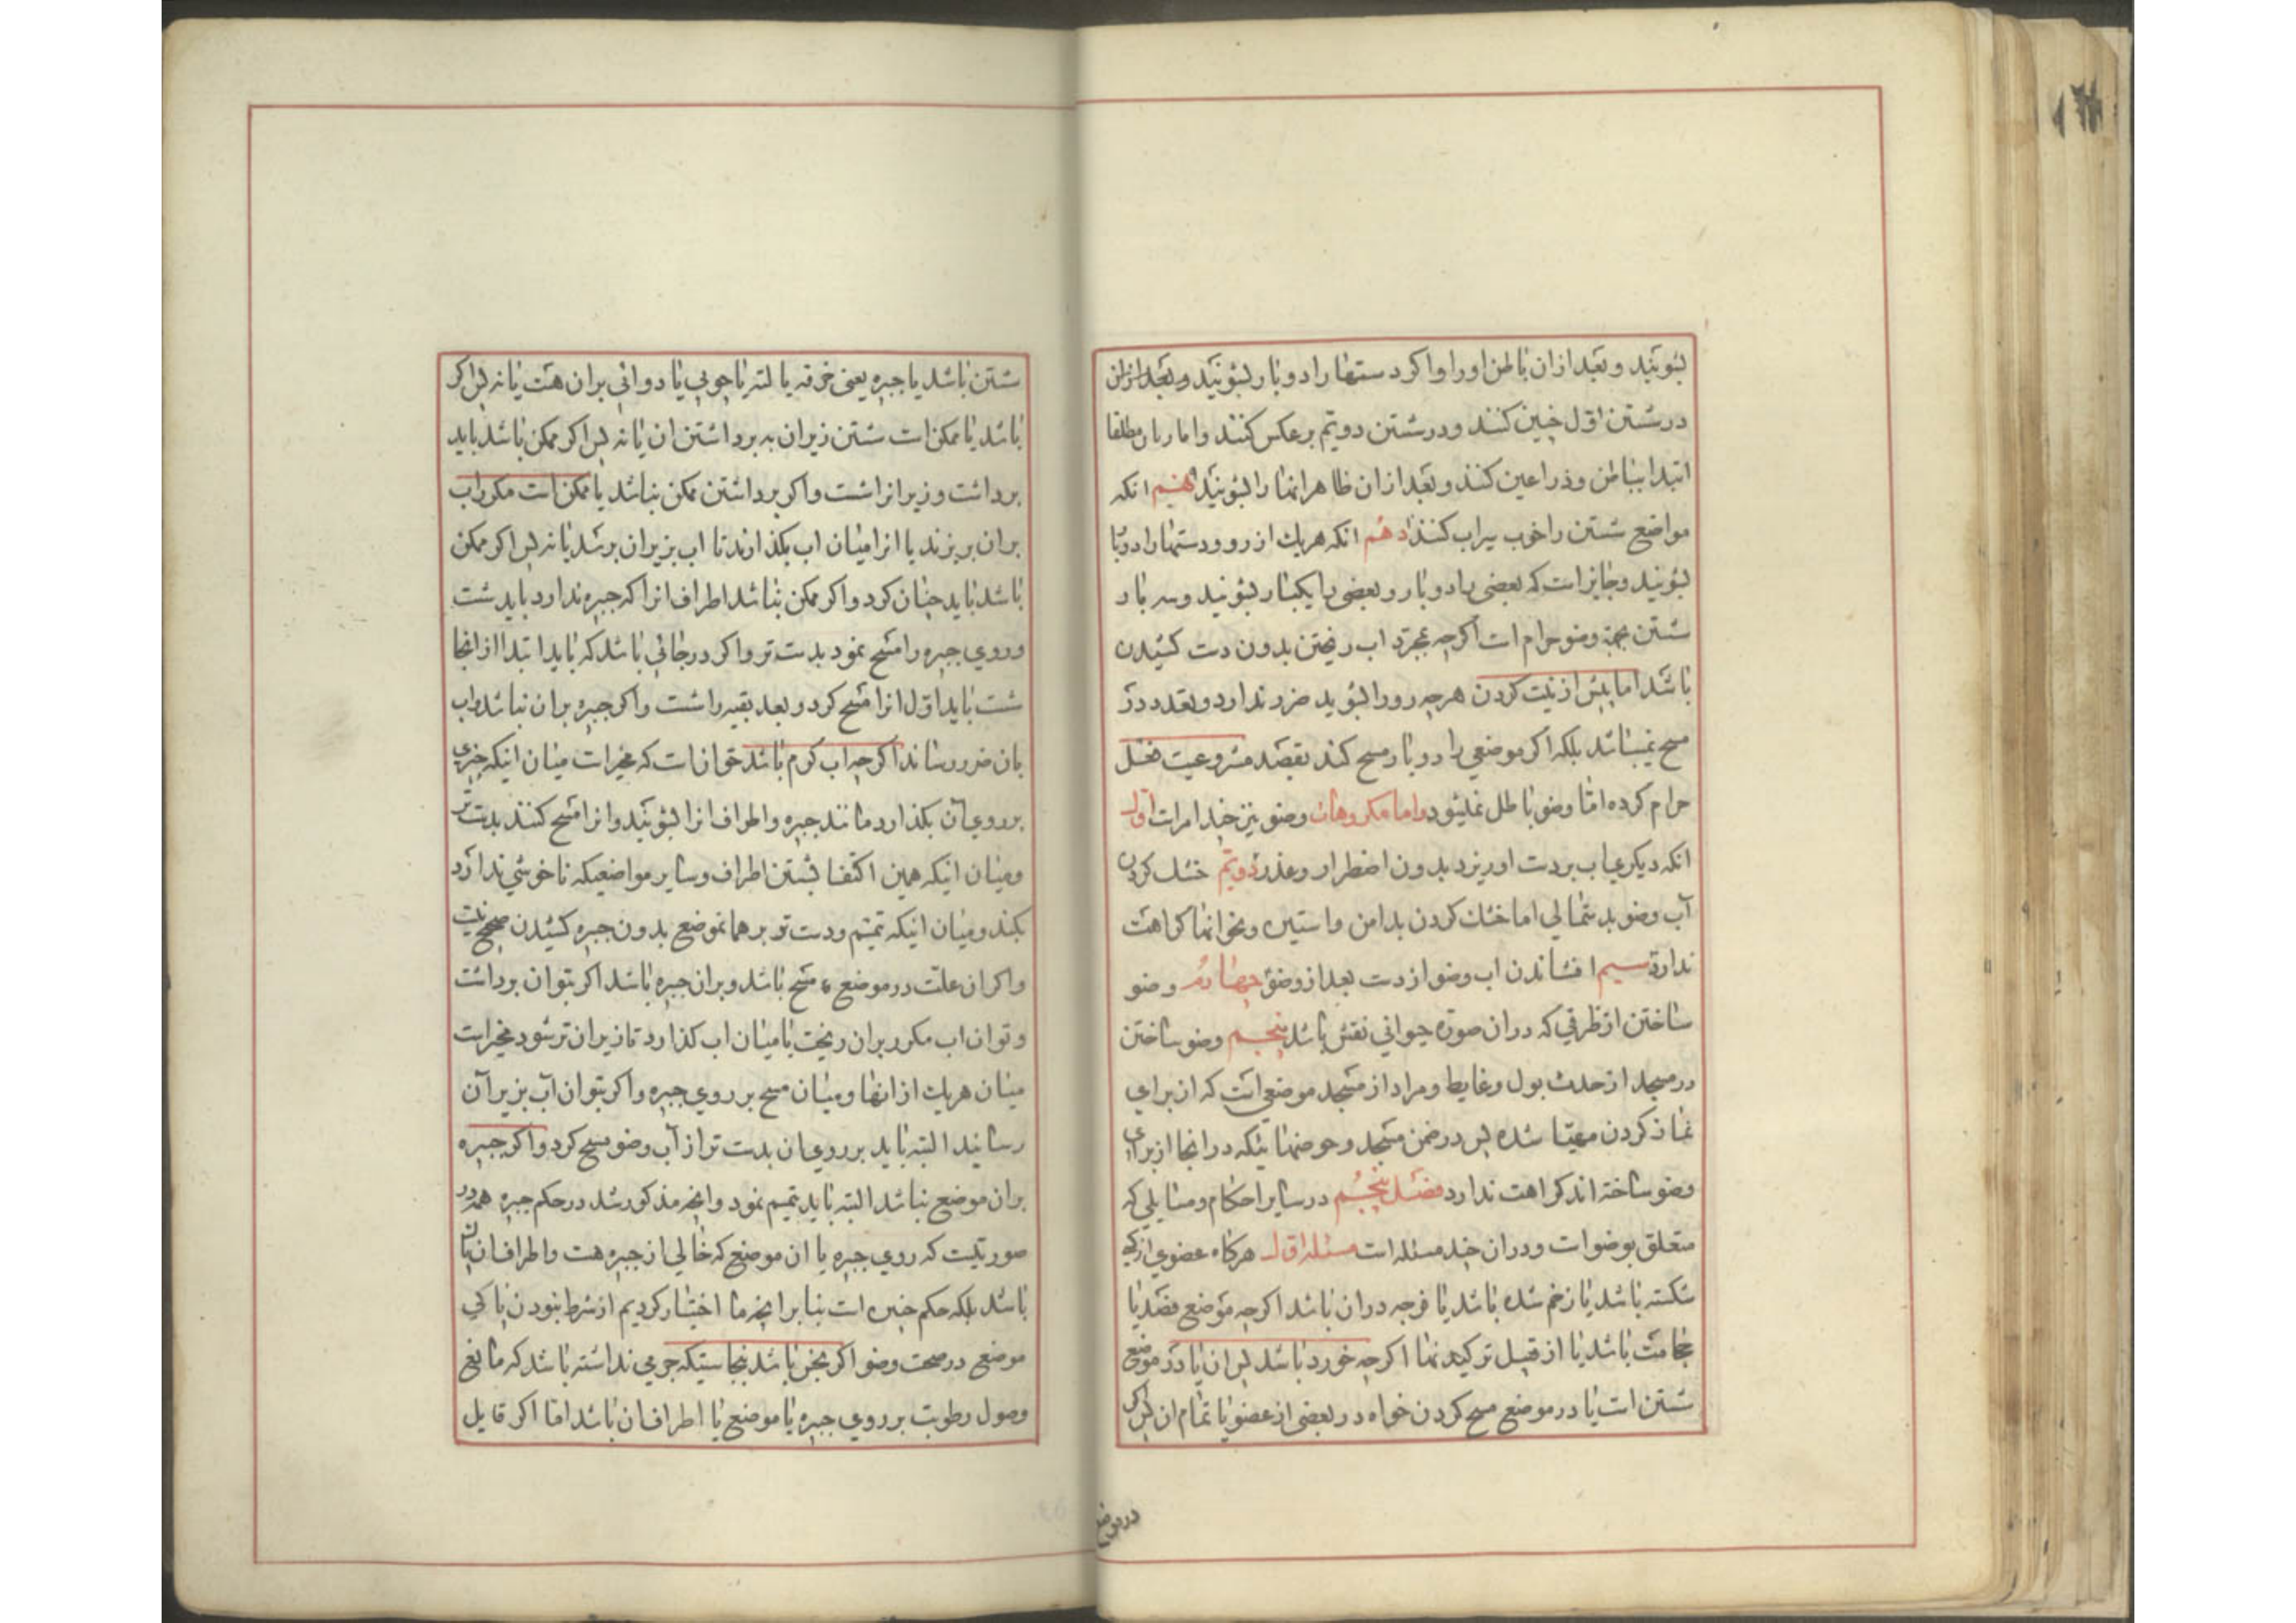 بشویند و بعد ازان باطن او را و اگر دستها را دو بار بشویند و بعد ازان
در شستن اول چنین کنند و در شستن دویم برعکس کنند و اما زنان مطلقا
ابتدا بباطن و ذراعین کنند و بعد ازان ظاهر انها را بشویند نهم انکه
مواضع شستن را خوب سیراب کنند دهم انکه هریك از رو و دستها را دو بار
بشویند و جایز است که بعضی را دو بار و بعضی را یکبار بشویند و سه بار
شستن بجهة وضو حرام است اگرچه بمجرد اب ریختن بدون دست کشیدن
باشد اما پیش از نیت کردن هرچه رو را بشوید ضرر ندارد و تعدد در
مسح نمیباشد بلکه اگر موضعی را دو بار مسح کند بقصد مشروعیت فعل
حرام کرده اما وضو باطل نمیشود و اما مکروهات وضو نیز چند امر است اول
انکه دیگری اب بر دست او ریزد بدون اضطرار و عذر دویم خشك کردن
آب وضو بدستمالی اما خشك کردن بدامن و استین و نحو انها کراهت
ندارد سیم افشاندن اب وضو از دست بعد از وضو چهارم وضو
ساختن از ظرفی که در ان صورة حیوانی نقش باشد پنجم وضو ساختن
در مسجد از حدث بول و غایط و مراد از مسجد موضعی است که از برای
نماز کردن مهیا شده پس در ضمن مسجد و حوضهائیکه در انجا از برای
وضو ساخته اند کراهت ندارد فصل پنجم در سایر احکام و مسایلی که
متعلق بوضو است و در ان چند مسئله است مسئله اول هرگاه عضوی از کسی
شکسته باشد یا زخم شده باشد یا قرحه در ان باشد اگرچه موضع فصد یا
حجامت باشد یا از قبیل ترکیدنها اگرچه خورد باشد پس ان یا در موضع
شستن است یا در موضع مسح کردن خواه در بعضی از عضو یا تمام ان پس اگر
در موضع
شستن باشد یا جبیره یعنی خرقه یا لته یا چوبی یا دوائی بران هست یا نه پس اگر
باشد یا ممکن است شستن زیر ان به برداشتن ان یا نه پس اگر ممکن باشد باید
برداشت و زیر انرا شست و اگر برداشتن ممکن نباشد یا ممکن است مکرر اب
بران بریزند یا انرا میان اب بگذارند تا اب بزیر ان برسد یا نه پس اگر ممکن
باشد باید چنان کرد و اگر ممکن نباشد اطراف انرا که جبیره ندارد باید شست
و روی جبیره را مسح نمود بدست تر و اگر در جائی باشد که باید ابتدا از انجا
شست باید اول انرا مسح کرد و بعد بقیه را شست و اگر جبیره بران نباشد و اب
بان ضرر رساند اگرچه اب گرم باشد حق انست که مخیر است میان اینکه چیزی
بر روی آن بگذارد مانند جبیره و اطراف انرا بشویند و انرا مسح کنند بدست تر
و میان اینکه همین اکتفا بشستن اطراف و سایر مواضعیکه ناخوشی ندارد
بکند و میان اینکه تیمم و دست تر بر همانموضع بدون جبیره کشیدن صحیح نیست
و اگر ان علت در موضع مسح باشد و بران جبیره باشد اگر بتوان برداشت
و توان اب مکرر بران ریخت یا میان اب گذارد تا زیر ان تر شود مخیر است
میان هریك از انها و میان مسح بر روی جبیره و اگر بتوان آب بزیر آن
رسانید البته باید بر روی ان بدست تر از آب وضو مسح کرد و اگر جبیره
بران موضع نباشد البته باید تیمم نمود و انچه مذکور شد در حکم جبیره همه در
صورتیست که روی جبیره یا ان موضع که خالی از جبیره هست و اطراف ان پاك
باشد بلکه حکم چنین است بنا بر انچه ما اختیار کردیم از شرط نبودن پاکی
موضع در صحت وضو اگر نجس باشد بنجاستیکه جرمی نداشته باشد که مانع
وصول رطوبت بر روی جبیره یا موضع یا اطراف ان باشد اما اگر قایل